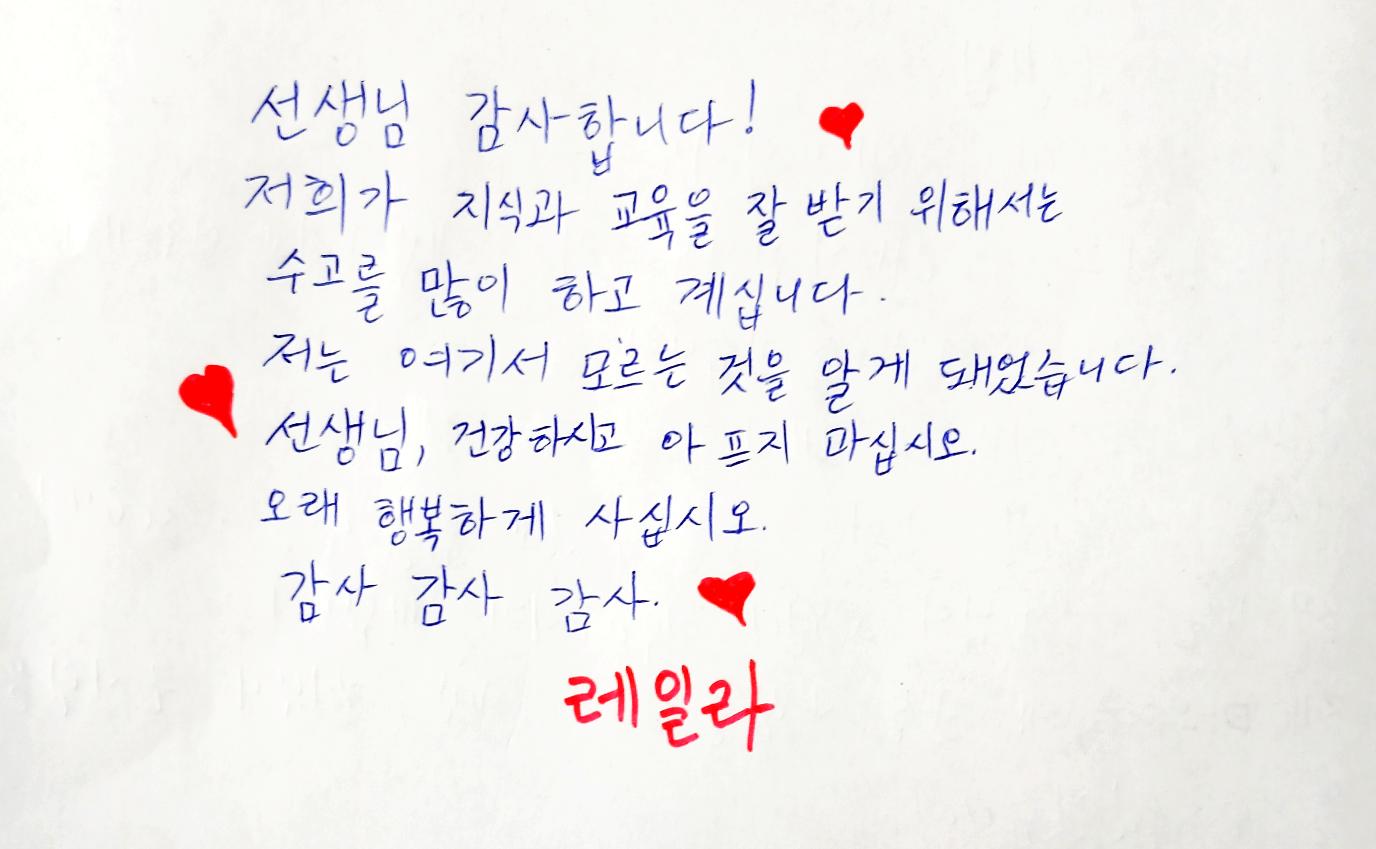 선생님 감사합니다!
저희가 지식과 교육을 잘 받기 위해서는
수고를 많이 하고 계십니다.
저는 여기서 모르는 것을 알게 돼었습니다.
선생님, 건강하시고 아프지 마십시오.
오래 행복하게 사십시오.
감사 감사 감사.
레일라